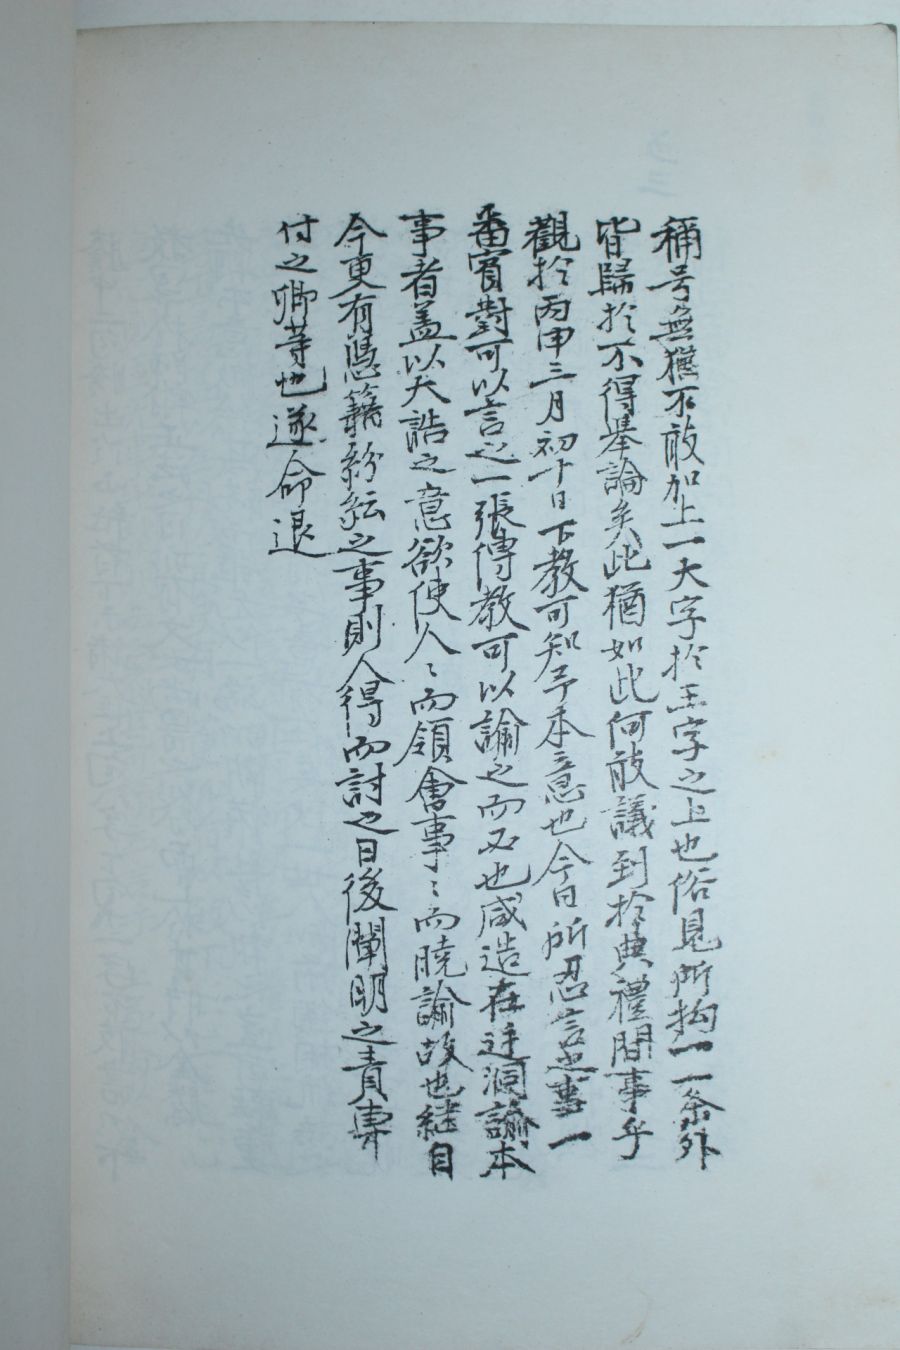 稱号無獲不敢加上一大字於王字之上也俗見所拘一一条外
皆歸於不得舉論矣此猶如此何敢議到於典禮間事乎
觀於丙申三月初十日下教可知予本意也今日所忍言之事一
番賓對可以言之一張傳教可以諭之而必也咸造在廷洞諭本
事者盖以大誥之意欲使人〻而領會事〻而曉諭故也继自
今更有憑籍紛紜之事則人得而討之日後闡明之責専
付之卿等也遂命退